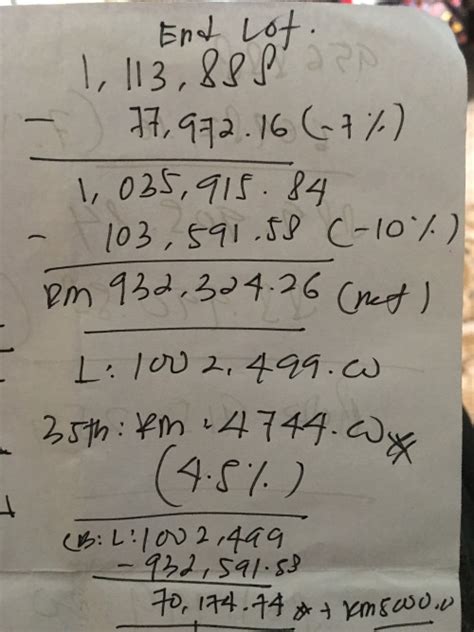 End Lot.
1, 113, 888
- 77,972.16 (-7%)
1, 035,915.84
- 103,591.58 (-10%)
RM 932,324.26 (net)
L: 1002,499.00
35th: RM 4744.00*
(4.5%)
CB: L: 1002,499
- 932,591.58
70,174.74 * + RM5000.0